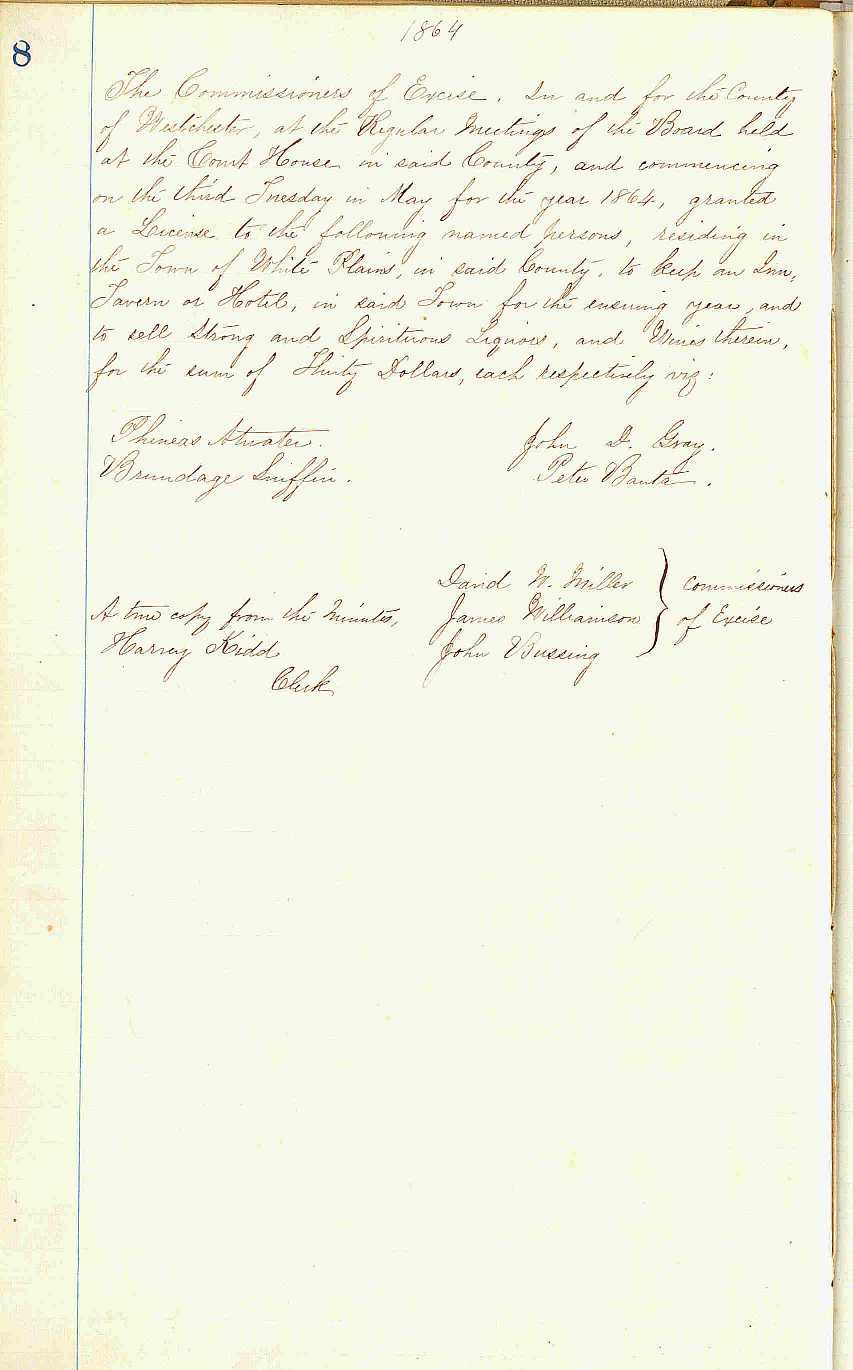 1864
8
The Commissioners of Excise. In and for the County
of Westchester, at the Regular Meetings of the Board held
at the Court House in said County, and commencing
on the third Tuesday in May for the year 1864, granted
a License to the following named persons, residing in
the Town of White Plains, in said County, to keep an Inn,
Tavern or Hotel, in said Town for the ensuing year, and
to sell Strong and Spirituous Liquors, and Wines therein,
for the sum of Thirty Dollars, each respectively viz:
Phineas Atwater. John D. Gray.
Brundage Sniffin. Peter Banta.
David W. Miller
James Williamson
John Bussing
} Commissioners
of Excise
A true copy from the Minutes,
Harvey Kidd
Clerk